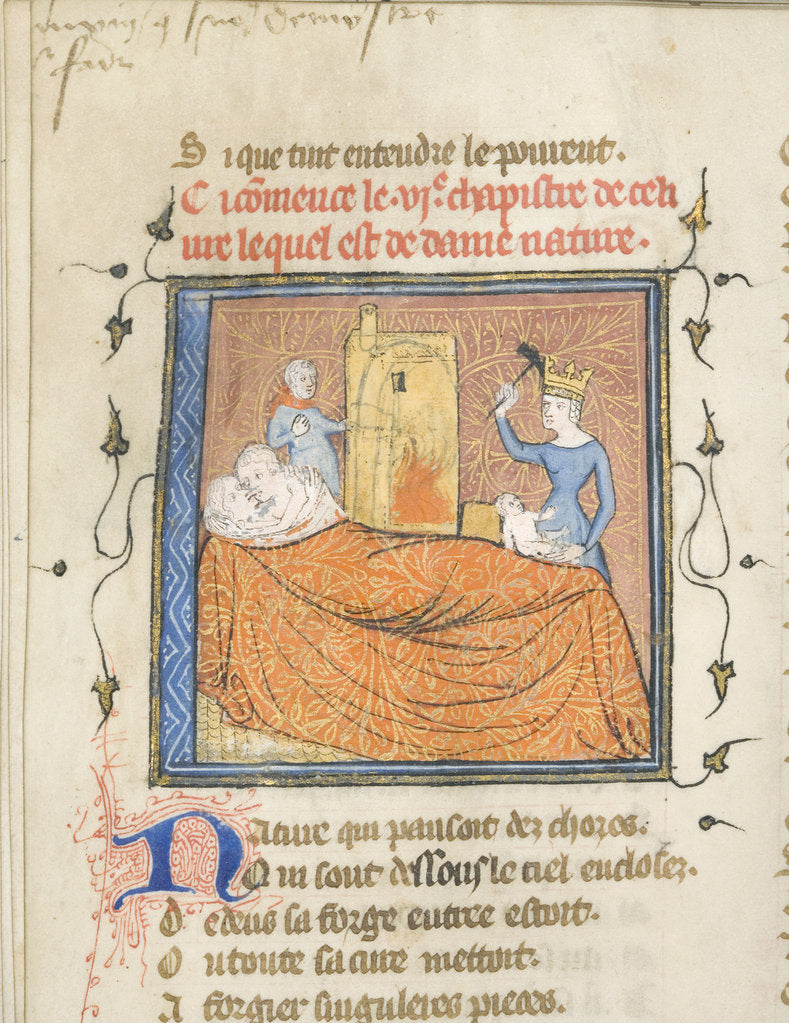 S i que tuit entendre le puurent.
C i cōmence le .vi.e chapistre de ce li
ure lequel est de dame nature.
Nature qui pansoit dez chozes.
Q ui sont dessous le ciel enclosez.
D edens sa forge entree estoit.
O u toute sa cure mettoit.
A forgier singuleres pieces.